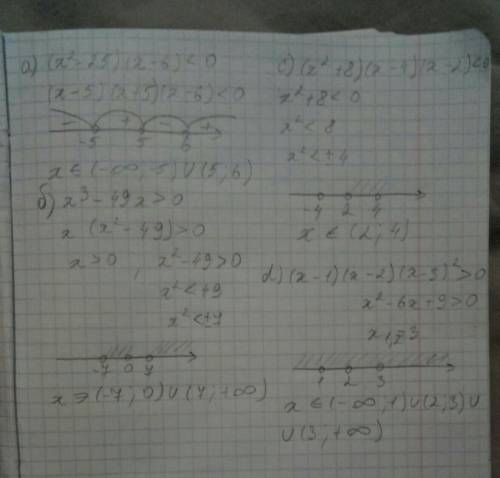 a) (x²-25)(x-6)<0
(x-5)(x+5)(x-6)<0
- + - +
-5 5 6
x ∈ (-∞; -5) ∪ (5; 6)
б) x³-49x>0
x (x²-49)>0
x>0 , x²-49>0
x²<49
x²<±7
-7 0 7
x ∋ (-7; 0) ∪ (7; +∞)
c) (x²+8)(x-4)(x-2)<0
x²+8<0
x²<8
x²<±4
-4 2 4
x ∈ (2; 4)
d) (x-1)(x-2)(x-3)²>0
x²-6x+9>0
x₁,₂=3
1 2 3
x ∈ (-∞; 1) ∪ (2; 3) ∪
∪ (3; +∞)